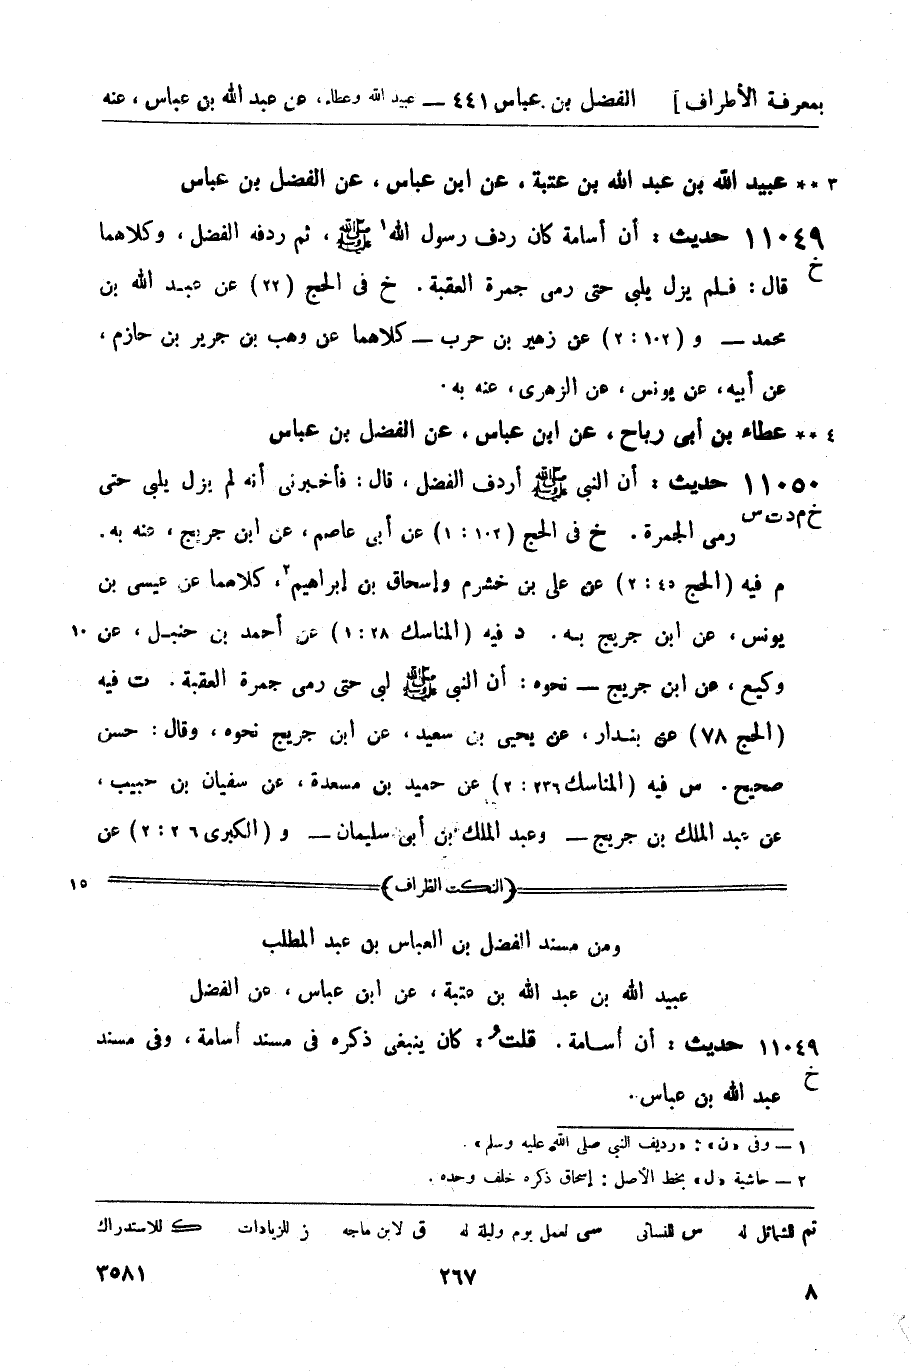 بمعرفة الأطراف] الفضل بن عباس ٤٤١ — عبيد الله وعطاء، عن عبد الله بن عباس، عنه
٣ ** عبيد الله بن عبد الله بن عتبة، عن ابن عباس، عن الفضل بن عباس
١١٠٤٩ حديث: أن أسامة كان ردف رسول الله١ ﷺ، ثم ردفه الفضل، وكلاهما
خ قال: فـلم يزل يلبي حتى رمى جمرة العقبة. خ فى الحج (٢٢) عن عبد الله بن
محمد — و (١٠٢: ٢) عن زهير بن حرب — كلاهما عن وهب بن جرير بن حازم،
عن أبيه، عن يونس، عن الزهرى، عنه به.
٤ ** عطاء بن أبى رباح، عن ابن عباس، عن الفضل بن عباس
١١٠٥٠ حديث: أن النبي ﷺ أردف الفضل، قال: فأخبرنى أنه لم يزل يلبي حتى
خ م د ت س رمى الجمرة. خ فى الحج (١٠٢: ١) عن أبى عاصم، عن ابن جريج، عنه به.
م فيه (الحج ٤٥: ٢) عن على بن خشرم وإسحاق بن إبراهيم٢، كلاهما عن عيسى بن
يونس، عن ابن جريج بـه. د فيه (المناسك ٢٨: ١) عن أحمد بن حنبـل، عن ١٠
وكيع، عن ابن جريج — نحوه: أن النبي ﷺ لبى حتى رمى جمرة العقبة. ت فيه
(الحج ٧٨) عن بنـدار، عن يحيى بن سعيد، عن ابن جريج نحوه، وقال: حسن
صحيح. س فيه (المناسك ٢٣٦: ٢) عن حميد بن مسعدة، عن سفيان بن حبيب،
عن عبد الملك بن جريج — وعبد الملك بن أبى سليمان — و (الكبرى ٢٢٦: ٢) عن
(النكت الظراف) ١٥
ومن مسند الفضل بن العباس بن عبد المطلب
عبيد الله بن عبد الله بن عتبة، عن ابن عباس، عن الفضل
١١٠٤٩ حديث: أن أسـامة. قلت: كان ينبغى ذكره فى مسند أسامة، وفى مسند
خ عبد الله بن عباس.
١ — وفى «ن»: «رديف النبي صلى الله عليه وسلم».
٢ — حاشية «ل» بخط الأصل: إسحاق ذكره خلف وحده.
تم للشمائل له س للنسائى سى لعمل يوم وليلة له ق لابن ماجه ز للزيادات ك للاستدراك
٨ ٢٦٧ ٣٥٨١